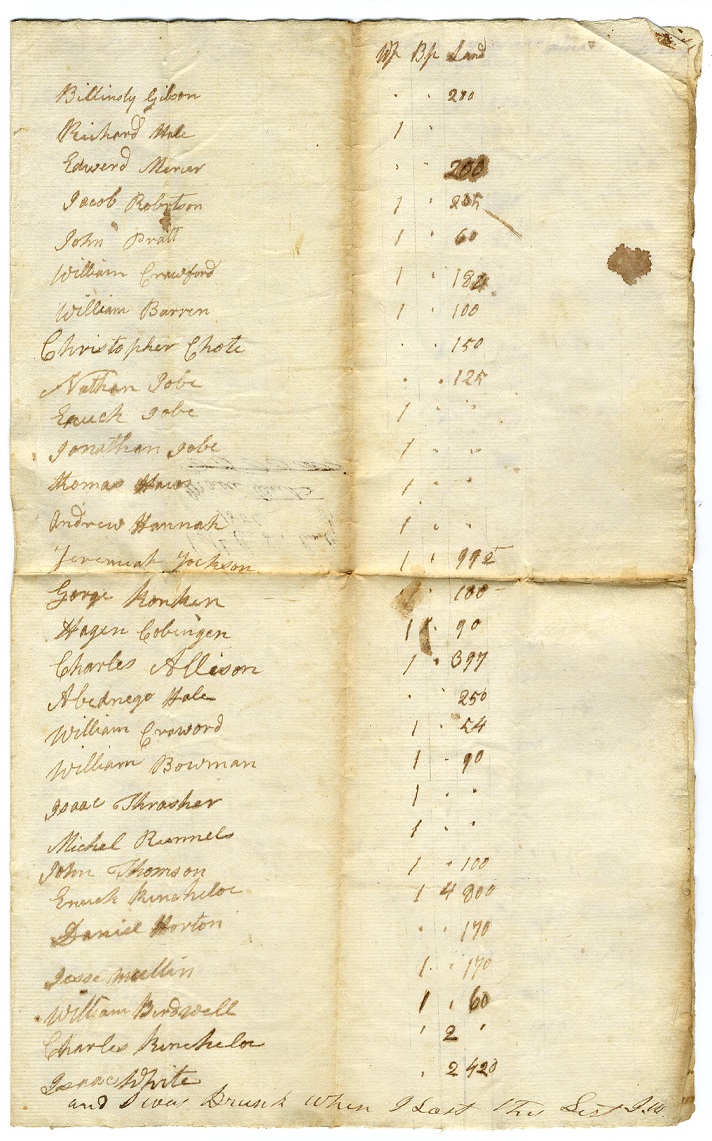 Wp Bp Land
Billinsly Gibson . . 200
Richard Hale 1 .
Edwerd Mercer . . 200
Jacob Robrtson 1 . 205
John Pratt 1 . 60
William Crawford 1 . 184
William Barren 1 . 100
Christopher Chote . . 150
Nathan Jobe . . 125
Enuck Jobe 1 . .
Jonathan Jobe 1 . .
thomas Haws 1 . .
Andrew Hannah 1 . .
Jeremiah Jackson 1 . 992
Gorge 100
Hagen Cobingen 1 . 90
Charles Allison 1 . 397
Abednego Hale . . 250
William Craword 1 . 54
William Bowman 1 . 90
Isaac Thrasher 1 . .
Michel Runnels 1 . .
John Thomson 1 . 100
Enuck Kincheloe 1 4 800
Daniel Horton . . 170
Jesse mullin 1 . 170
William Birdwell 1 . 60
Charles Kincheloe ' 2 '
Isaac White . 2 420
and I was Drunk when I Lost this List J.W.